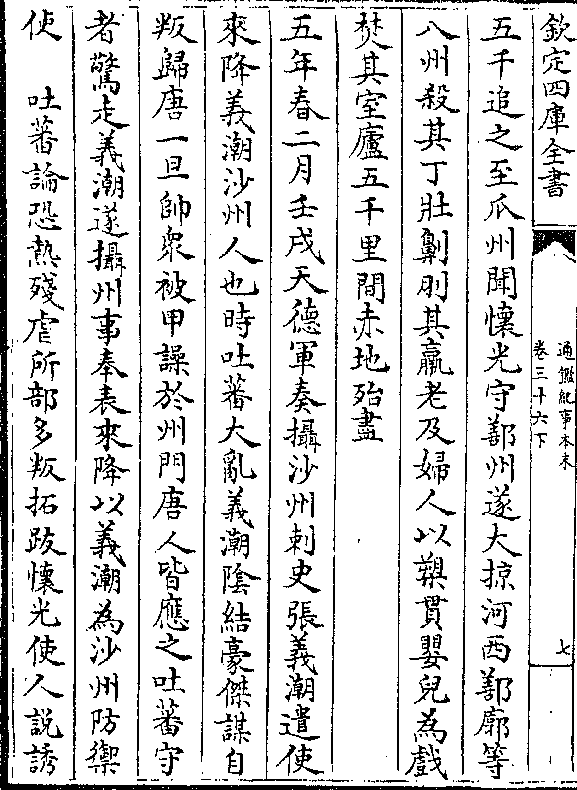 欽定四庫全書
通鑑紀事本末
卷三十六下
七
五千追之至瓜州聞懷光守鄯州遂大掠河西鄯廓等
八州殺其丁壯劓刖其羸老及婦人以槊貫嬰兒為戲
焚其室廬五千里間赤地殆盡
五年春二月壬戌天德軍奏攝沙州刺史張義潮遣使
來降義潮沙州人也時吐蕃大亂義潮陰結豪傑謀自
叛歸唐一旦帥衆被甲譟於州門唐人皆應之吐蕃守
者驚走義潮遂攝州事奉表來降以義潮為沙州防禦
使 吐蕃論恐熱殘虐所部多叛拓跋懷光使人説誘